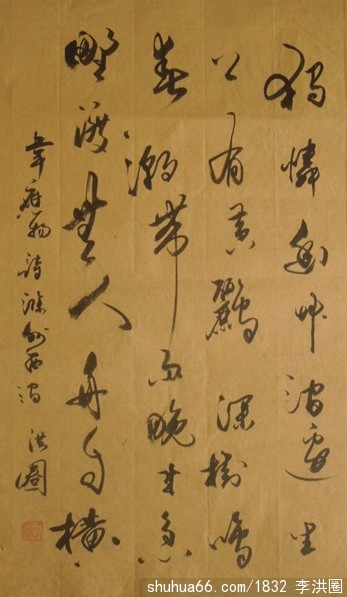 獨憐幽艸澗邊生
上有黃鸝深樹鳴
春潮帶雨晚來急
野渡無人舟自橫
韋應物詩滁州西澗 洪圈
shuhua66.com/1832 李洪圈